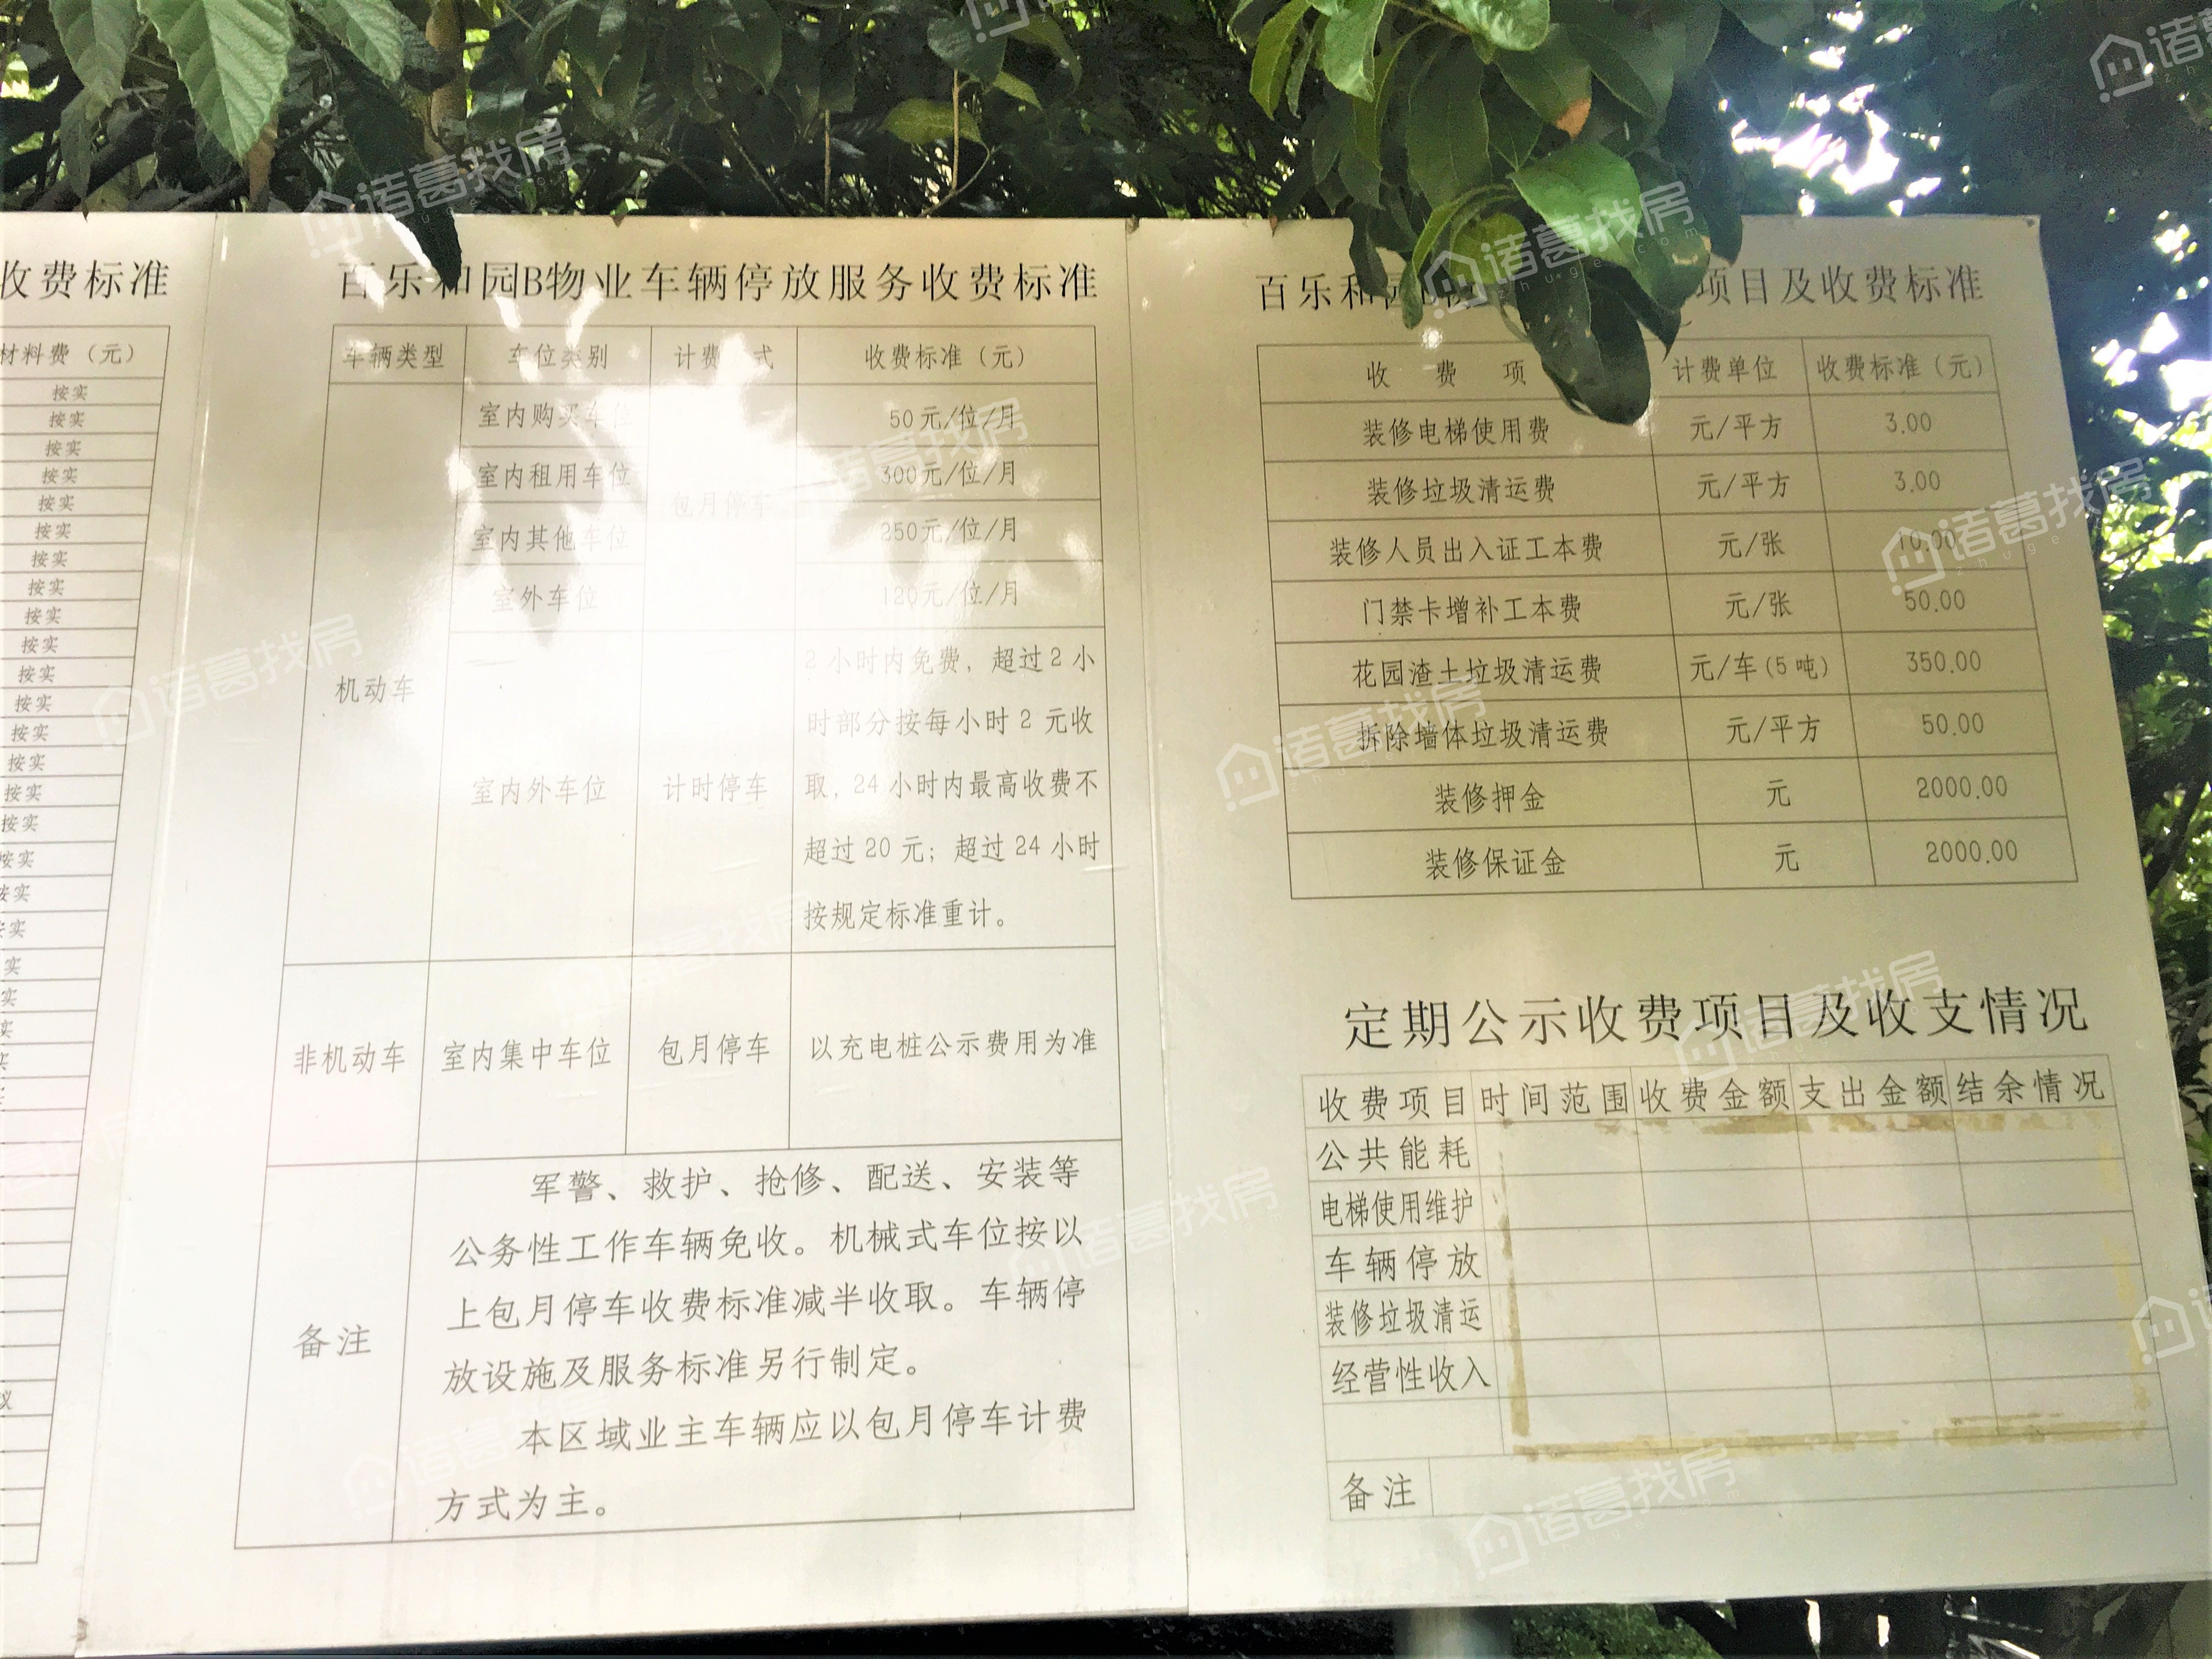 收费标准
材料费（元）
按实
按实
按实
按实
按实
按实
按实
按实
按实
按实
按实
按实
按实
按实
按实
按实
按实
按实
实
实
实
实
议
百乐和园B物业车辆停放服务收费标准
车辆类型 车位类别 计费 式 收费标准（元）
机动车
室内购买车位 50元/位/月
室内租用车位 300元/位/月
包月停车
室内其他车位 250元/位/月
室外车位 120元/位/月
室内外车位 计时停车
2小时内免费，超过2小
时部分按每小时2元收
取，24小时内最高收费不
超过20元；超过24小时
按规定标准重计。
非机动车 室内集中车位 包月停车 以充电桩公示费用为准
备注
军警、救护、抢修、配送、安装等
公务性工作车辆免收。机械式车位按以
上包月停车收费标准减半收取。车辆停
放设施及服务标准另行制定。
本区域业主车辆应以包月停车计费
方式为主。
百乐和 项目及收费标准
收 费 项 计费单位 收费标准（元）
装修电梯使用费 元/平方 3.00
装修垃圾清运费 元/平方 3.00
装修人员出入证工本费 元/张 10.00
门禁卡增补工本费 元/张 50.00
花园渣土垃圾清运费 元/车(5吨) 350.00
拆除墙体垃圾清运费 元/平方 50.00
装修押金 元 2000.00
装修保证金 元 2000.00
定期公示收费项目及收支情况
收费项目 时间范围 收费金额 支出金额 结余情况
公共能耗
电梯使用维护
车辆停放
装修垃圾清运
经营性收入
备注
诸葛找房
zhuge.com